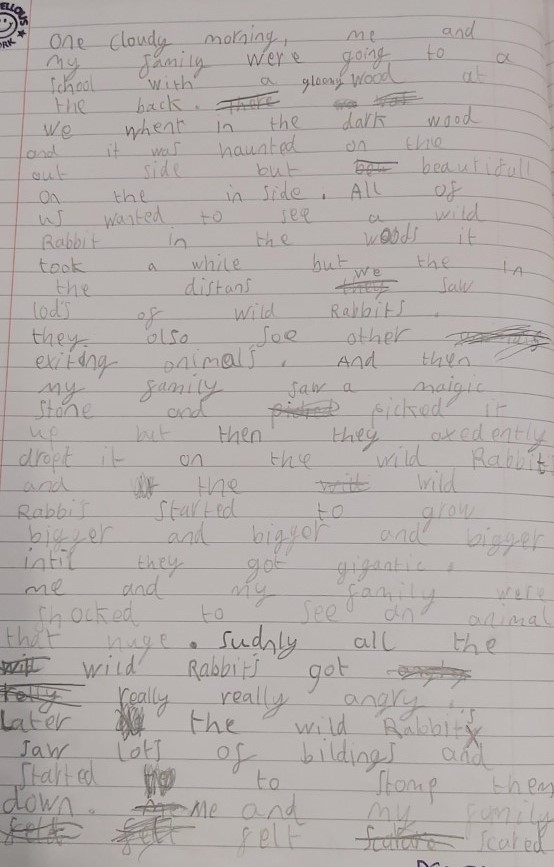 ELLOUS
RK
One cloudy morning, me and
my family were going to a
school with a gloomy wood at
the back. There
We whent in the dark wood
and it was haunted on the
out side but beautifull
on the in side. All of
us wanted to see a wild
Rabbit in the woods it
took a while but the in
the distans they we saw
lods of wild Rabbits.
they also soe other
exiting animals. And then
my family saw a maigic
stone and picked picked it
up but then they axedently
dropt it on the wild Rabbit
and the wild
Rabbis started to grow
bigger and bigger and bigger
intil they got gigantic.
me and my family were
shocked to see an animal
that huge. Sudnly all the
wild Rabbits got
really really angry..
Later the wild Rabbits
saw lots of bildings and
started to stomp them
down. Me and my family
felt felt felt scared